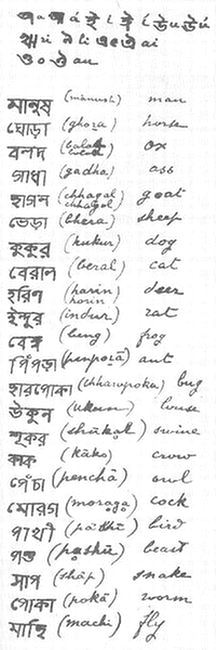 অ a আ á ই i ঈ í উ u ঊ ú
ঋ ri এ e ঐ ai
ও o ঔ au
মানুষ (mānush) man
ঘোড়া (ghoṛa) horse
বলদ ox
গাধা (gadha) ass
ছাগল (chhagal chhagol) goat
ভেড়া (bhera) sheep
কুকুর (kukur) dog
বেরাল (beral) cat
হরিণ (harin horin) deer
ইন্দুর (indur) rat
বেঙ্গ (beng) frog
পিঁপড়া (penpoṛā) ant
ছারপোকা (chharopoka) bug
উকুন (ukun) louse
শূকর (shūkar) swine
কাক (kāko) crow
পেঁচা (penchā) owl
মোরগ (moraga) cock
পাখী (pākhī) bird
পশু (pashū) beast
সাপ (shāp) snake
পোকা (pokā) worm
মাছি (machi) fly